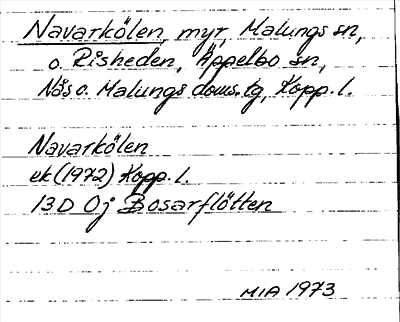 Navarkölen, myr, Malungs sn,
o. Risheden, Äppelbo sn,
Nås o. Malungs doms. tg, Kopp. l.
Navarkölen
ek (1972) Kopp. l.
13 D Oj Bosarflötten
MIA 1973